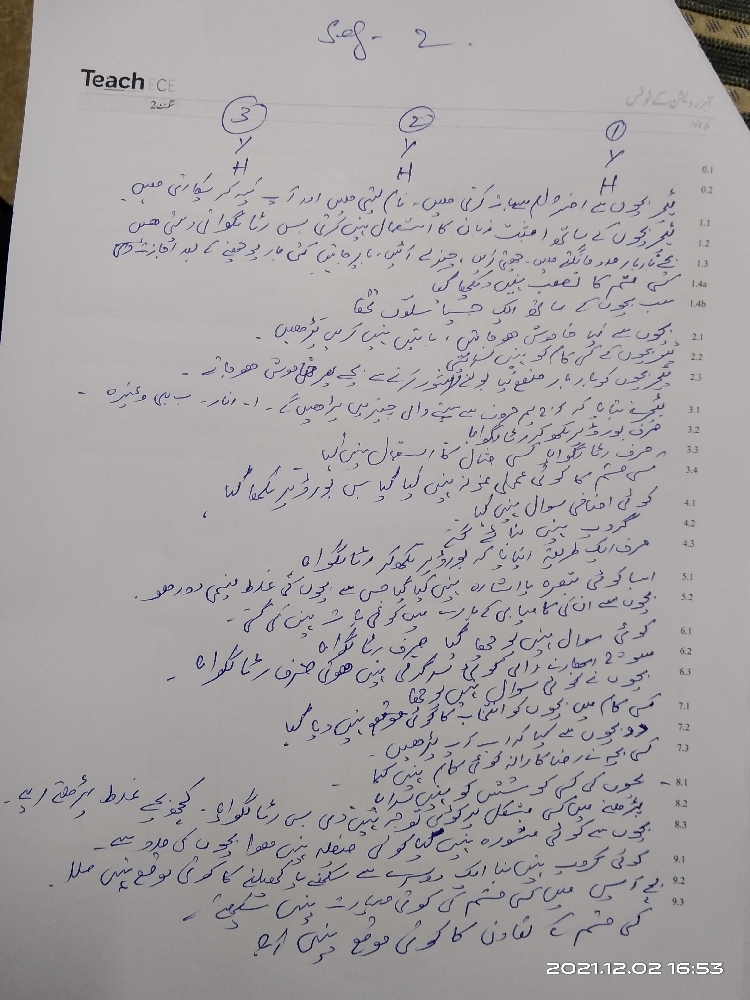 Seg - 2.
Teach ECE
آبزرویشن کے نوٹس
سیگمنٹ 2
3 2 1
Y Y Y
H H H
0.1
0.2 ٹیچر بچوں سے احترام سے بات کرتی ہیں۔ نام لیتی ہیں اور آپ کہہ کر پکارتی ہیں۔
1.1 ٹیچر بچوں کے ساتھ مثبت زبان کا استعمال نہیں کرتی بس رٹا لگوائی رہتی ہیں
1.2 بچے بار بار مدد مانگتے ہیں۔ کئی بار پوچھنے کے بعد اجازت دی
1.3 کسی قسم کا تعصب نہیں دیکھا گیا
1.4a سب بچوں کے ساتھ ایک جیسا سلوک تھا
1.4b
2.1 بچوں سے کہا خاموش ہو جائیں، باتیں نہیں کریں پڑھیں۔
2.2 ٹیچر بچوں کے کسی کام کو نہیں
2.3 ٹیچر بچوں کو بار بار منع کیا بولنے اور شور کرنے سے بچے پھر خاموش ہو جاتے۔
3.1 ٹیچر نے بتایا کہ ہم حروف سے بننے والی چیزیں پڑھیں گے۔ ا۔ انار۔ ب وغیرہ۔
3.2 صرف بورڈ پر لکھ کر رٹا لگوایا
3.3 صرف رٹا لگوایا کسی مثال کا استعمال نہیں کیا
3.4 کسی قسم کا کوئی عملی نمونہ نہیں کیا گیا بس بورڈ پر لکھا گیا۔
4.1 کوئی اضافی سوال نہیں کیا
4.2 گروپ نہیں بنائے گئے
4.3 صرف ایک طریقہ اپنایا کہ بورڈ پر لکھ کر رٹا لگوایا
5.1 ایسا کوئی تبصرہ یا اشارہ نہیں کیا گیا جس سے بچوں کی غلط فہمی دور ہو۔
5.2 بچوں سے ان کی کامیابی کے بارے میں کوئی بات نہیں کی گئی۔
6.1 کوئی سوال نہیں پوچھا گیا صرف رٹا لگوایا
6.2 سوچ ابھارنے والی کوئی سرگرمی نہیں ہوئی صرف رٹا لگوایا۔
6.3 بچوں نے کوئی سوال نہیں پوچھا
7.1 کسی کام میں بچوں کو انتخاب کا کوئی موقع نہیں دیا گیا
7.2 دو بچوں سے کہا کہ اب آپ پڑھیں۔
7.3 کسی بچے نے رضاکارانہ کوئی کام نہیں کیا
8.1 بچوں کی کسی کوشش کو نہیں سراہا
8.2 پڑھنے میں کسی مشکل پر کوئی توجہ نہیں دی بس رٹا لگوایا۔ کچھ بچے غلط پڑھتے رہے۔
8.3 بچوں سے کوئی مشورہ نہیں کیا کوئی فیصلہ نہیں ہوا بچوں کی مدد سے۔
9.1 کوئی گروپ نہیں بنا ایک دوسرے سے سیکھنے یا کھیلنے کا کوئی موقع نہیں ملا۔
9.2 بچے آپس میں کسی قسم کی کوئی مہارت نہیں سیکھتے۔
9.3 کسی قسم کے تعاون کا کوئی موقع نہیں آیا
2021.12.02 16:53